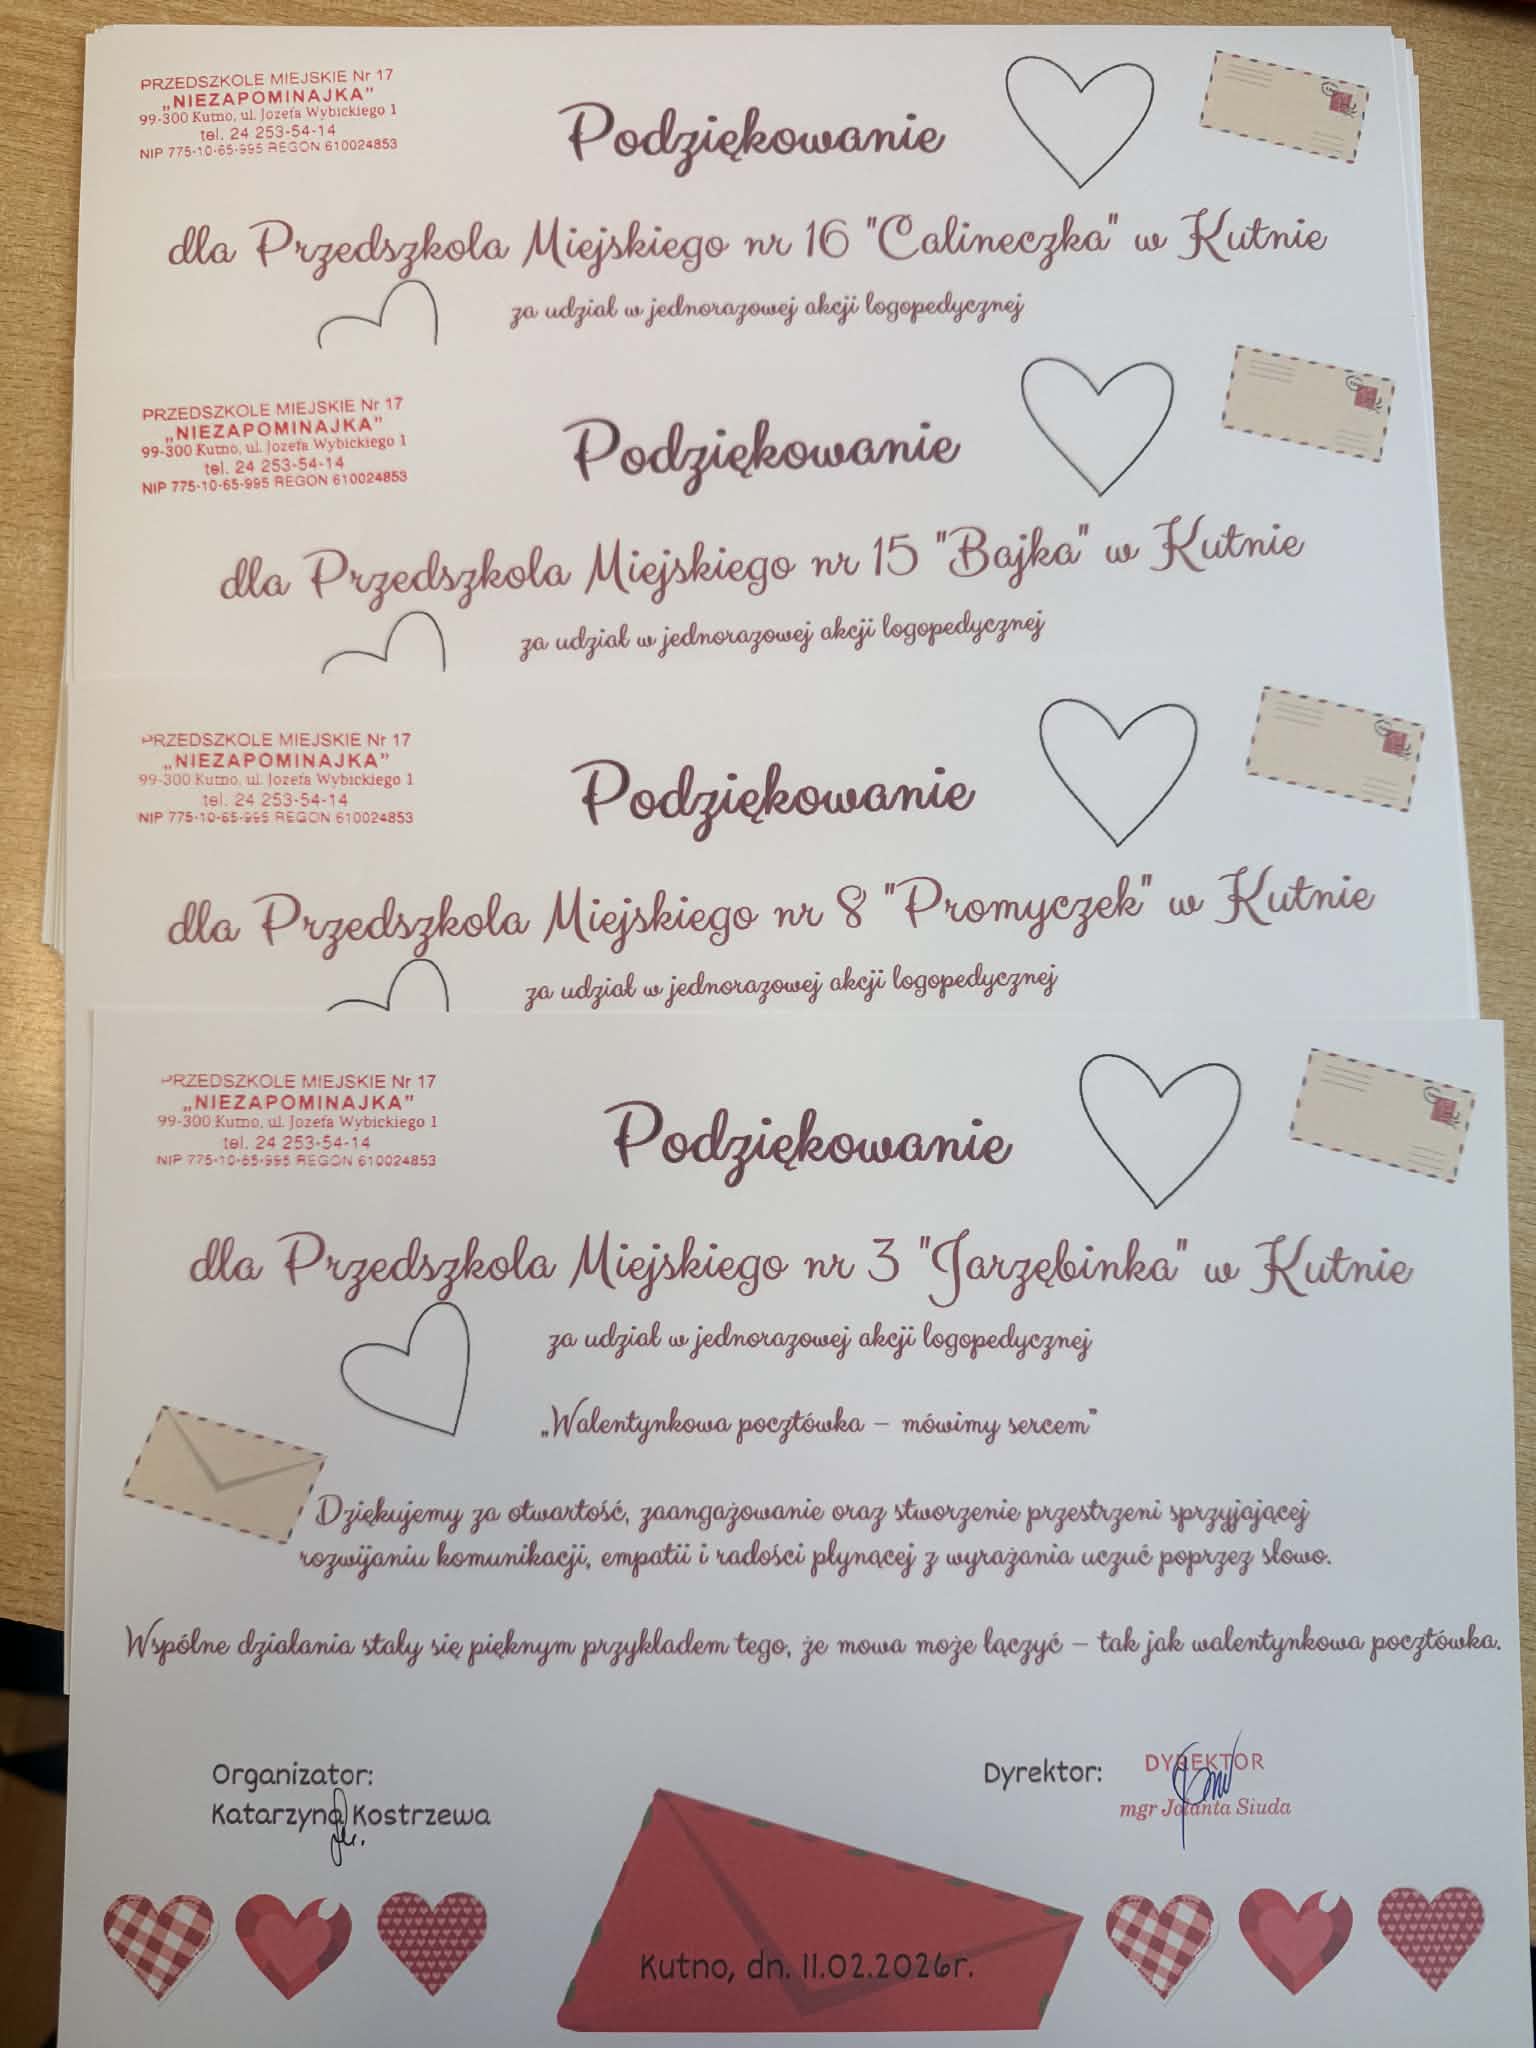 PRZEDSZKOLE MIEJSKIE Nr 17
„NIEZAPOMINAJKA”
99-300 Kutno, ul. Jozefa Wybickiego 1
tel. 24 253-54-14
NIP 775-10-65-995 REGON 610024853
Podziękowanie
dla Przedszkola Miejskiego nr 16 "Calineczka" w Kutnie
za udział w jednorazowej akcji logopedycznej
PRZEDSZKOLE MIEJSKIE Nr 17
„NIEZAPOMINAJKA”
99-300 Kutno, ul. Jozefa Wybickiego 1
tel. 24 253-54-14
NIP 775-10-65-995 REGON 610024853
Podziękowanie
dla Przedszkola Miejskiego nr 15 "Bajka" w Kutnie
za udział w jednorazowej akcji logopedycznej
PRZEDSZKOLE MIEJSKIE Nr 17
„NIEZAPOMINAJKA”
99-300 Kutno, ul. Jozefa Wybickiego 1
tel. 24 253-54-14
NIP 775-10-65-995 REGON 610024853
Podziękowanie
dla Przedszkola Miejskiego nr 8 "Promyczek" w Kutnie
za udział w jednorazowej akcji logopedycznej
PRZEDSZKOLE MIEJSKIE Nr 17
„NIEZAPOMINAJKA”
99-300 Kutno, ul. Jozefa Wybickiego 1
tel. 24 253-54-14
NIP 775-10-65-995 REGON 610024853
Podziękowanie
dla Przedszkola Miejskiego nr 3 "Jarzębinka" w Kutnie
za udział w jednorazowej akcji logopedycznej
„Walentynkowa pocztówka – mówimy sercem”
Dziękujemy za otwartość, zaangażowanie oraz stworzenie przestrzeni sprzyjającej
rozwijaniu komunikacji, empatii i radości płynącej z wyrażania uczuć poprzez słowo.
Wspólne działania stały się pięknym przykładem tego, że mowa może łączyć – tak jak walentynkowa pocztówka.
Organizator:
Katarzyna Kostrzewa
Dyrektor:
DYREKTOR
mgr Jolanta Siuda
Kutno, dn. 11.02.2026r.